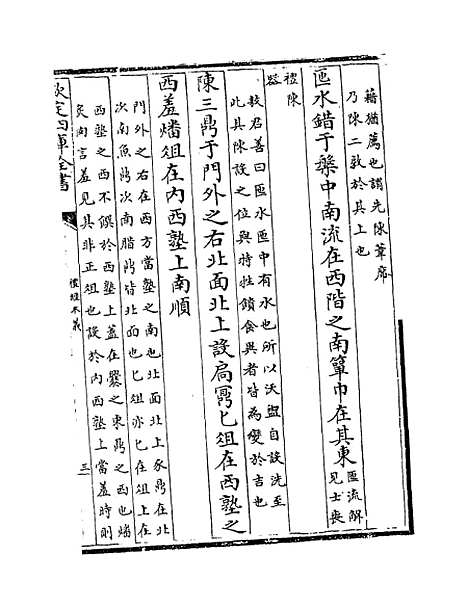 藉猶薦也謂先陳葦席
乃陳二敦於其上也
匜水錯于槃中南流在西階之南簞巾在其東匜流解
見士喪
禮陳
器
敖君善曰匜水匜中有水也所以沃盥自設洗至
此具陳設之位與特牲饋食異者皆為變於吉也
陳三鼎于門外之右北面北上設扃鼏匕俎在西塾之
西羞燔俎在內西塾上南順
門外之右在西方當塾之南也北面北上豕鼎在北
次南魚鼎次南腊鼎皆北面也匕俎亦匕在俎上在
西塾之西不饌於西塾上蓋在爨之東鼎之西也燔
炙向言羞見其非正俎也設於內西塾上當羞時則
欽定四庫全書
禮經本義
三